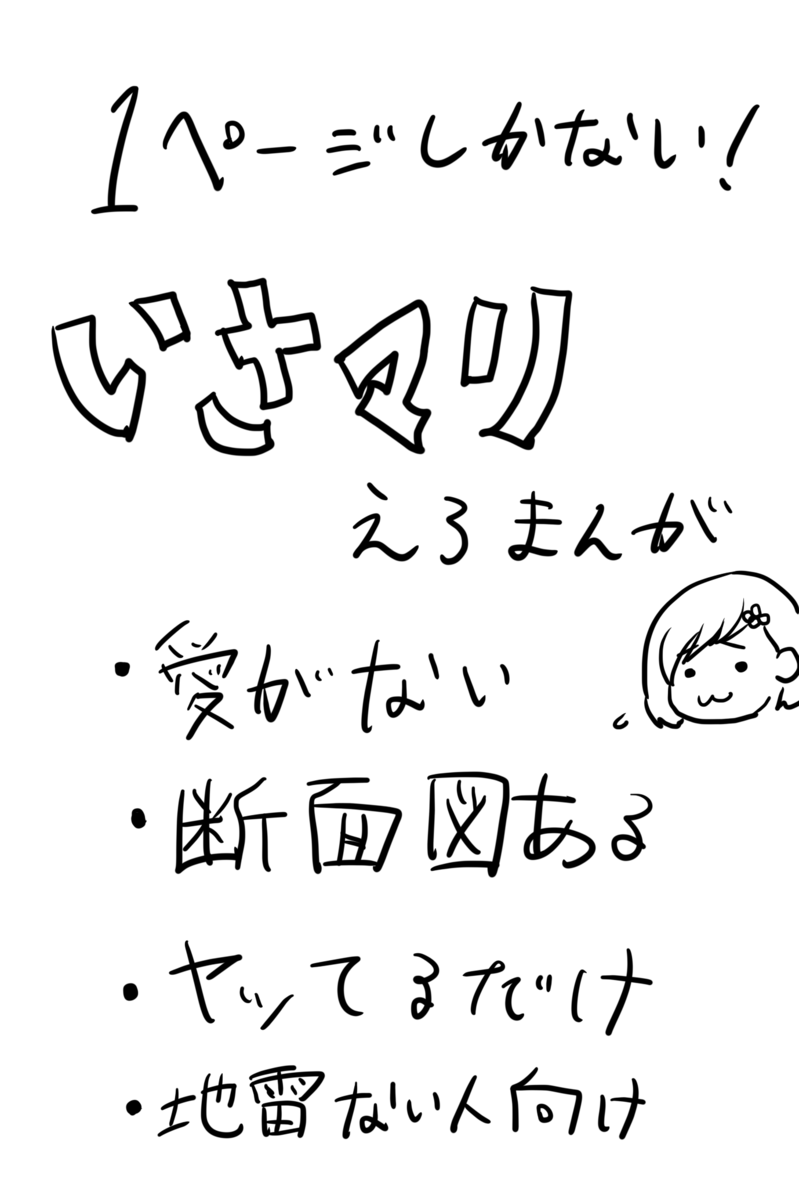 1ページしかない!
いさマリ
えろまんが
・愛がない
・断面図ある
・ヤッてるだけ
・地雷ない人向け